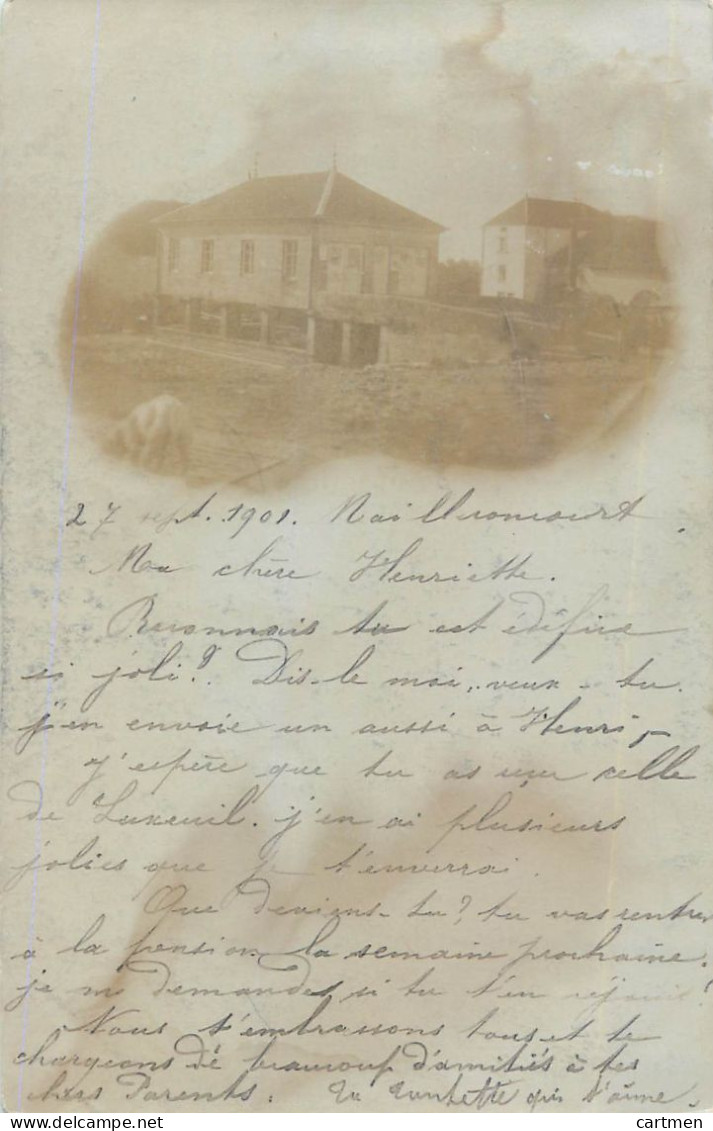 27 sept. 1901. Naillroncourt.
Ma chère Henriette.
Reconnais tu cet édifice
si joli? Dis-le moi, veux-tu.
j'en envoie un aussi à Henri,
J'espère que tu as reçu celle
de Luxeuil. j'en ai plusieurs
jolies que je t'enverrai.
Que deviens-tu? tu vas rentrer
à la pension la semaine prochaine.
je me demande si tu t'en réjouis!
Nous t'embrassons tous et te
chargeons de beaucoup d'amitiés à tes
chers Parents. Ta qui t'aime.
cartmen